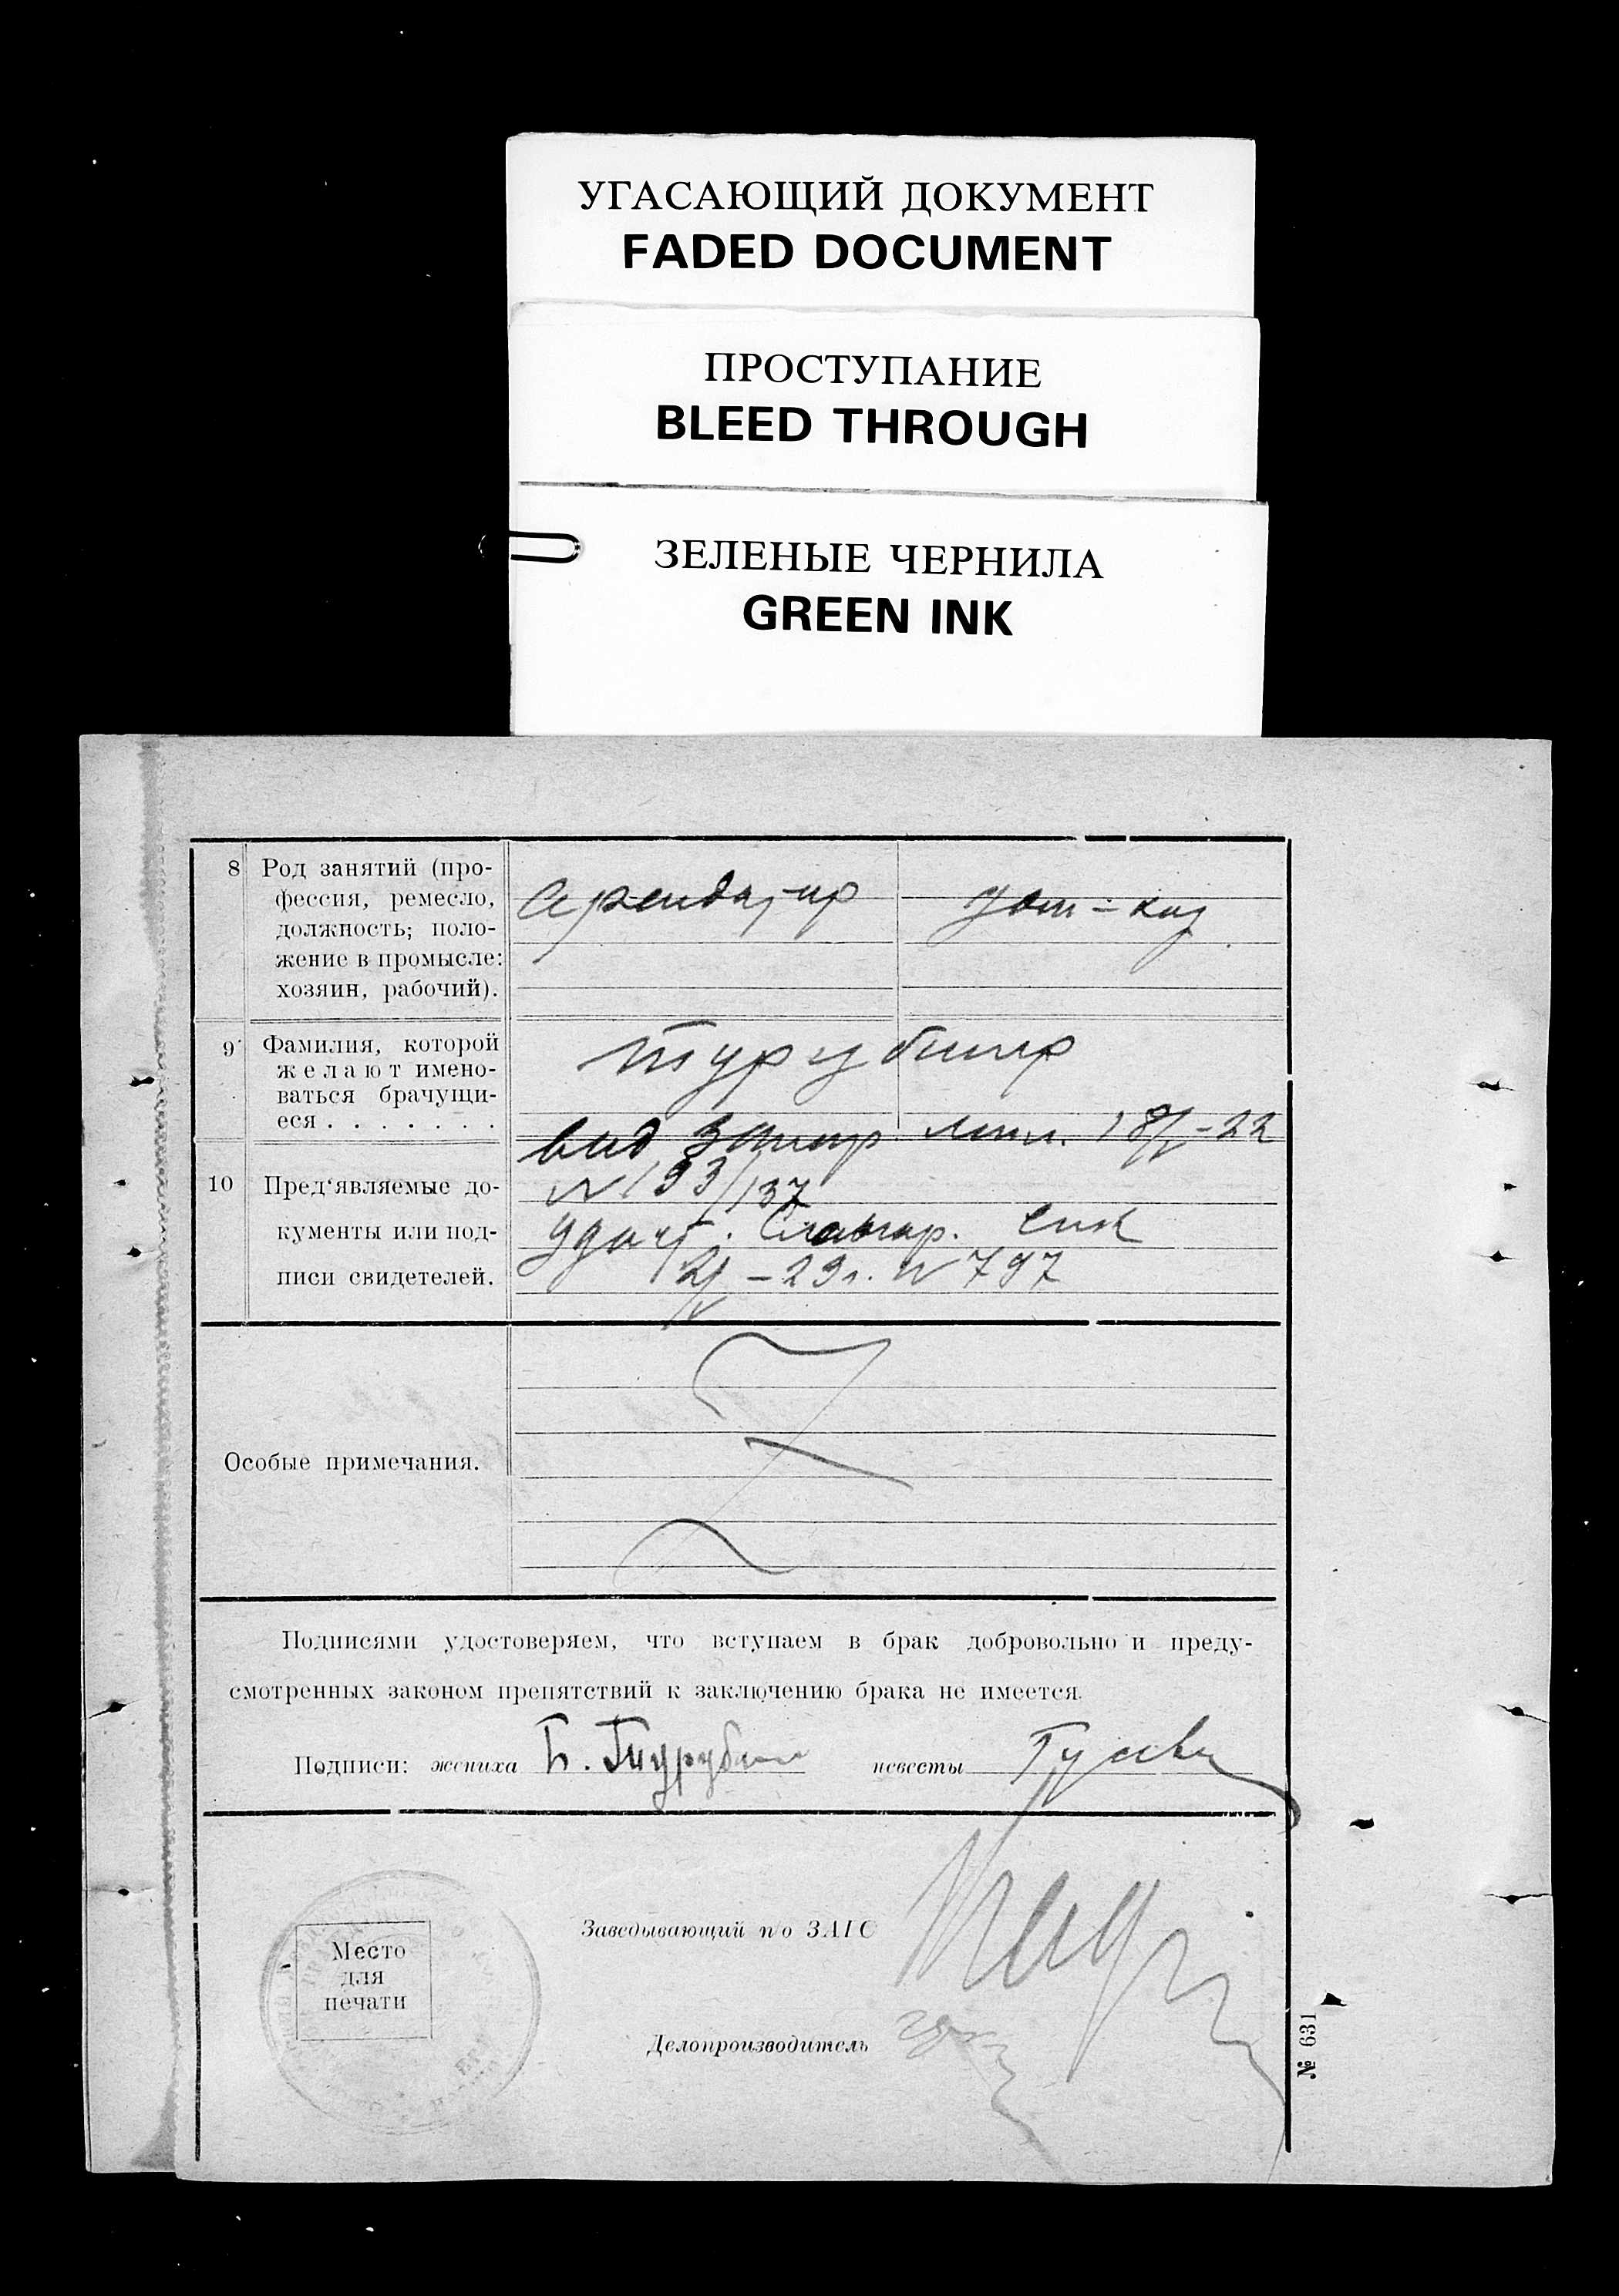 УГАСАЮЩИЙ ДОКУМЕНТ
FADED DOCUMENT
ПРОСТУПАНИЕ
BLEED THROUGH
ЗЕЛЕНЫЕ ЧЕРНИЛА
GREEN INK
8 Род занятий (про-
фессия, ремесло,
должность; поло-
жение в промысле:
хозяин, рабочий).
9 Фамилия, которой
желают имено-
ваться брачущи-
еся . . . . . . .
вид 18/V-22
10 Пред'являемые до-
кументы или под-
писи свидетелей.
N 193/137
Славгор.
2/V - 23г. N 797
Особые примечания.
Подписями удостоверяем, что вступаем в брак добровольно и преду-
смотренных законом препятствий к заключению брака не имеется.
Подписи: жениха Б. невесты
Заведывающий по ЗАГС
Место
для
печати
Делопроизводитель
№ 631